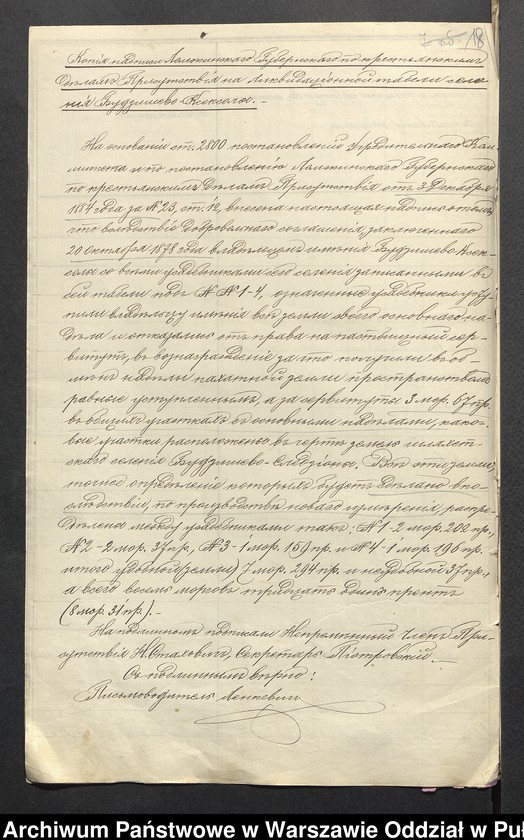 18
Копія надписи Ломжинскаго Губернскаго по крестьянскимъ
дѣламъ Присутствія на Ликвидаціонной табели селе-
нія Будзишево-Ксенсоло. –
На основаніи ст. 2800 постановленій Учредительнаго Ко-
митета и по постановленію Ломжинскаго Губернскаго
по крестьянскимъ дѣламъ Присутствія отъ 3 Декабря
1884 года за № 23, ст. 12, внесена настоящая надпись о томъ,
что вслѣдствіе добровольнаго соглашенія заключеннаго
20 Октября 1878 года владѣльцемъ имѣнія Будзишево-Ксен-
соло со всѣми усадебниками сего селенія записанными въ
сей табели подъ №№ 1-4, означенные усадебники усту-
пили владѣльцу имѣнія всѣ земли своего основнаго на-
дѣла и отказались отъ права на пастбищный сер-
витутъ, въ вознагражденіе за что получили въ об-
мѣнъ надѣлы пахатной земли пространствомъ
равные уступленнымъ, а за сервитуты 3 мор. 67 пр.
въ общихъ участкахъ съ основными надѣлами, како-
вые участки расположены въ чертѣ земель шляхет-
скаго селенія Будзишево-Следзіона. Всѣ эти земли,
точное опредѣленіе которыхъ будетъ сдѣлано впо-
слѣдствіи, по производствѣ новаго измѣренія, распре-
дѣлена между усадебниками такъ: № 1-2 мор. 202 пр.,
№ 2-2 мор. 37 пр., № 3-1 мор. 159 пр. и № 4-1 мор. 196 пр.
итого удобной (земли) 7 мор. 294 пр. и неудобной 37 пр.,
а всего восемь морговъ тридцать одинъ прентъ
(8 мор. 31 пр.). –
На подлинномъ подписали Непремѣнный Членъ При-
сутствія Н. Сталовичъ, Секретарь Піотровскій. –
Съ подлиннымъ вѣрно:
Письмоводитель Ленкевичъ
Archiwum Państwowe w Warszawie Oddział w Puł